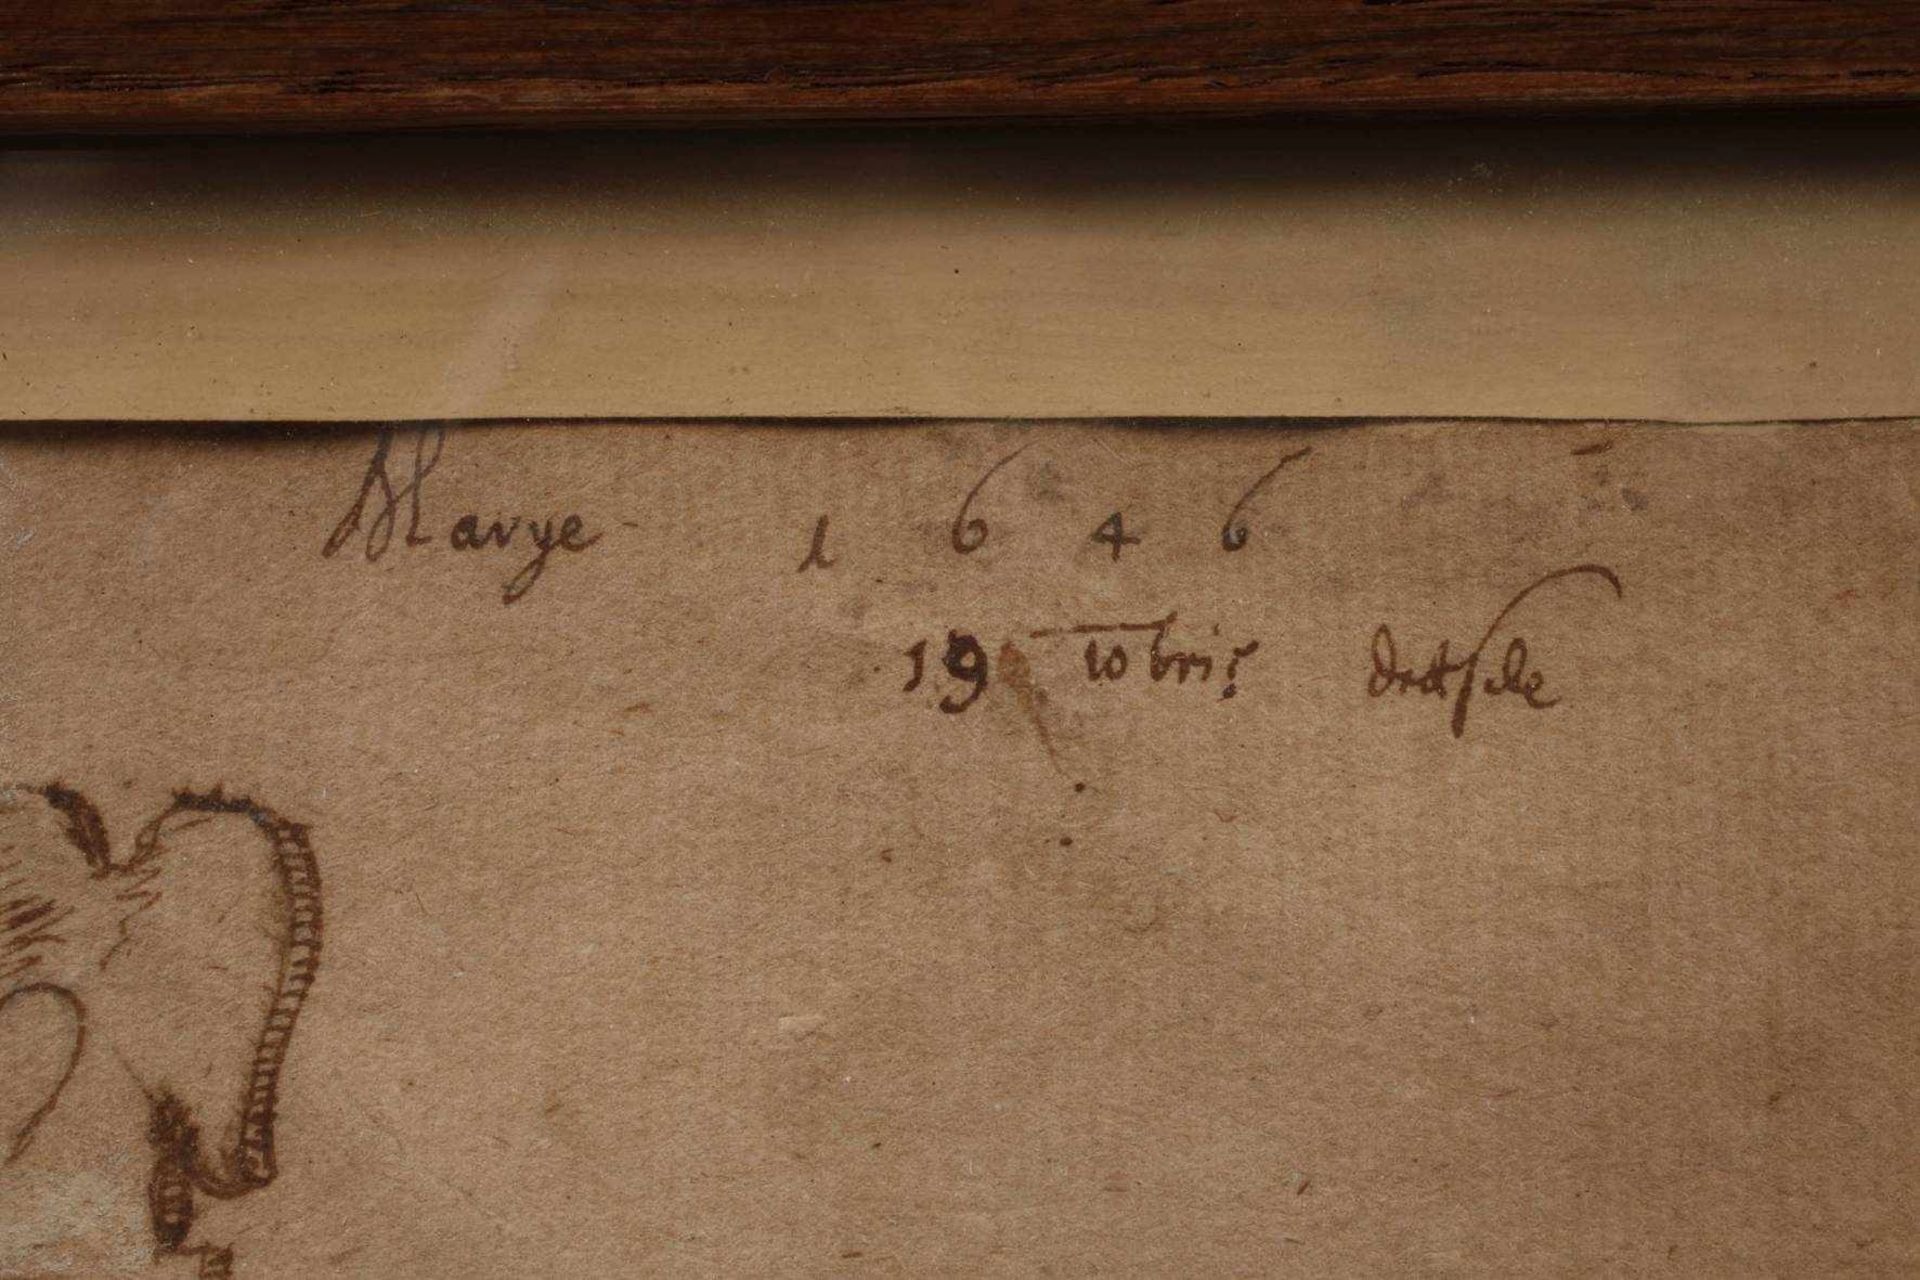 Marye 1 6 4 6
19 10bris